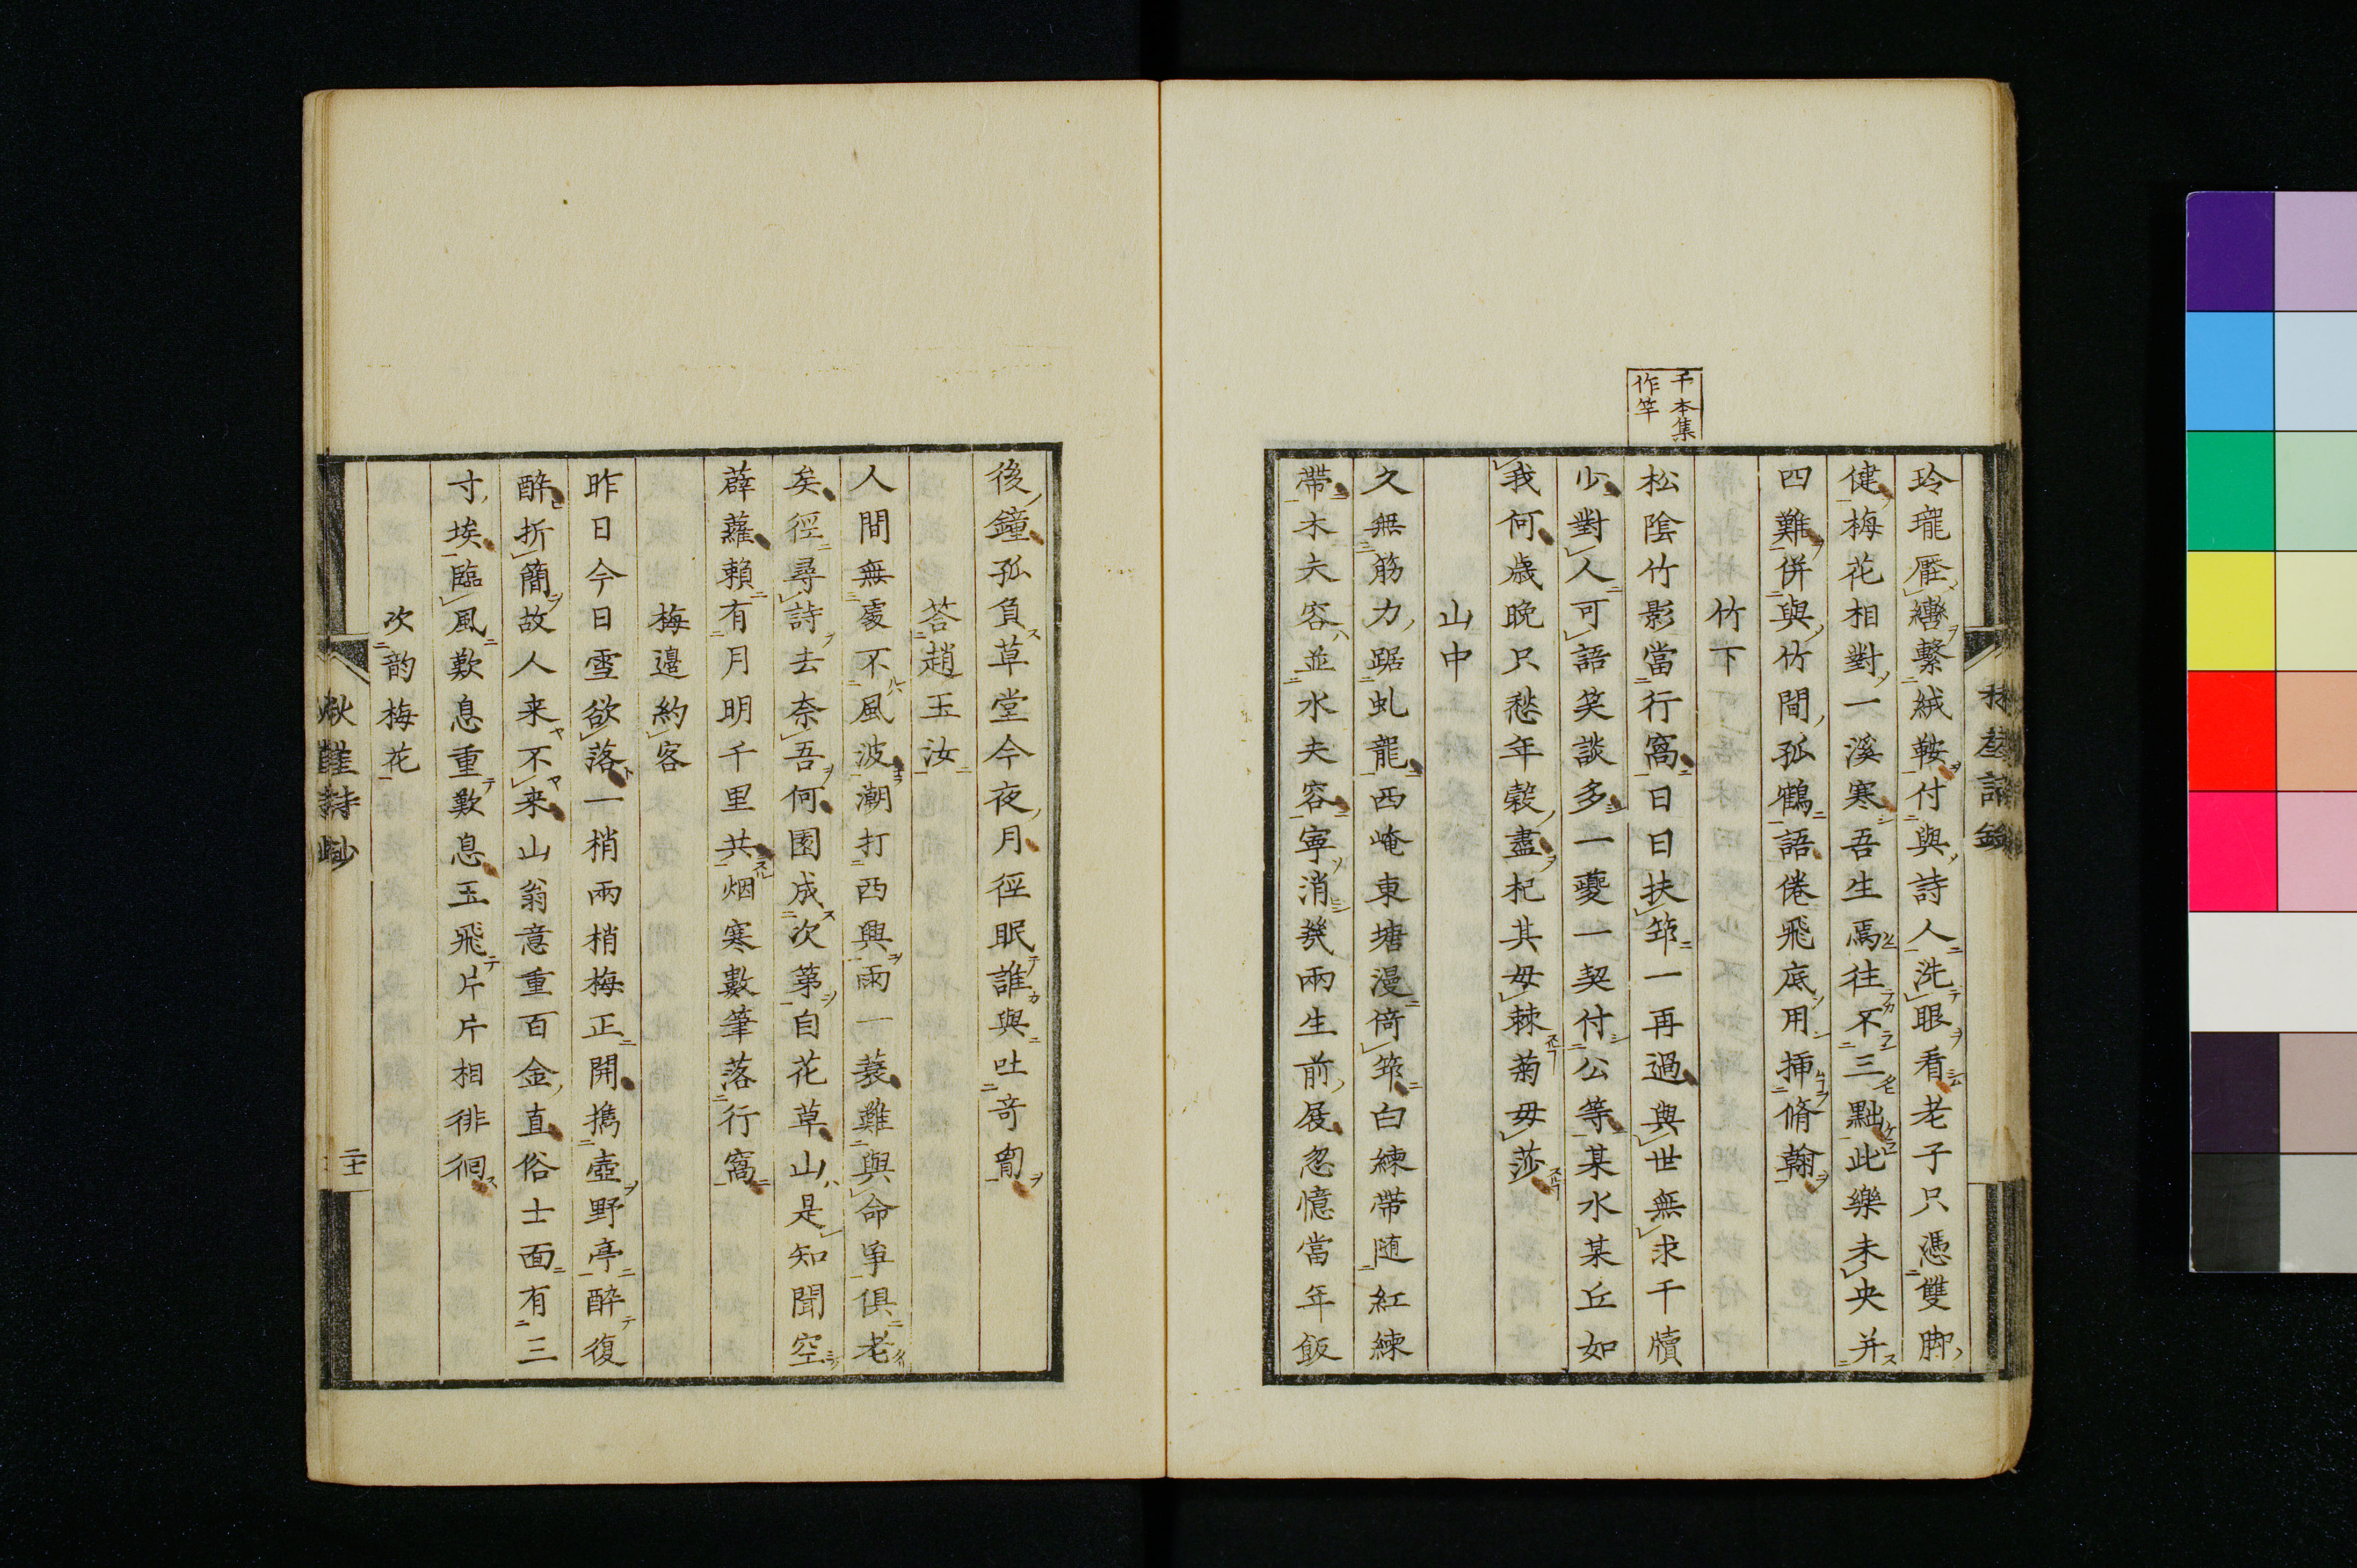 玲瓏雁轡繫絨鞍付與詩人洗眼看老子只憑雙脚
健梅花相對一溪寒吾生焉往不三黜此樂未央并
四難併與竹間孤鶴語倦飛底用揷脩翰
竹下
千本集
作竿
松陰竹影當行窩日日扶筇一再過與世無求千牘
少對人可語笑談多一夔一契付公等某水某丘如
我何歳晩只愁年穀盡杞其毋棘菊毋莎
山中
久無筋力踞虬龍西崦東塘漫倚筇白練帶随紅練
帶木夫容並水夫容寧消幾兩生前屐忽憶當年飯
後鐘孤負草堂今夜月徑眠誰與吐竒胷
荅趙玉汝
人間無處不風波潮打西興雨一蓑難與命爭俱老
矣徑尋詩去奈吾何園成次苐自花草山是知聞空
薜蘿賴有月明千里共烟寒數筆落行窩
梅邉約客
昨日今日雪欲落一梢兩梢梅正開攜壺野亭醉復
醉折簡故人来不来山翁意重百金直俗士面有三
寸埃臨風歎息重歎息玉飛片片相徘徊
次韵梅花
秋崖詩鈔
二十